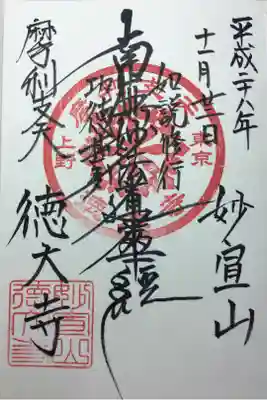 平成二十八年
十一月廿二日
妙宣山
如説修行
南無妙法蓮華経
功徳甚多
摩利支天
徳大寺
東京
上野